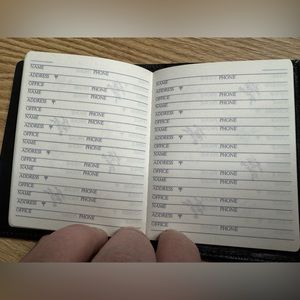 NAME PHONE
ADDRESS
OFFICE PHONE
NAME PHONE
ADDRESS
OFFICE PHONE
NAME PHONE
ADDRESS
OFFICE PHONE
NAME PHONE
ADDRESS
OFFICE PHONE
NAME PHONE
ADDRESS
OFFICE PHONE
NAME PHONE
ADDRESS
OFFICE PHONE
NAME PHONE
ADDRESS
OFFICE PHONE
NAME PHONE
ADDRESS
OFFICE PHONE
NAME PHONE
ADDRESS
OFFICE PHONE
NAME PHONE
ADDRESS
OFFICE PHONE
NAME PHONE
ADDRESS
OFFICE PHONE
NAME PHONE
ADDRESS
OFFICE